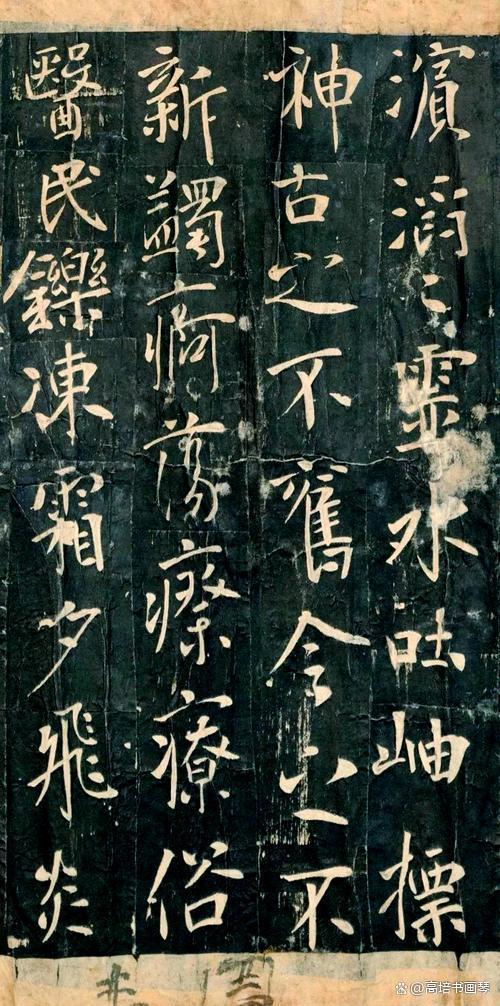 濱滔〻靈水吐岫標
神古之不舊今之不
新蠲痾蕩瘵療俗
醫民鑠凍霜夕飛炎
@高培书画琴